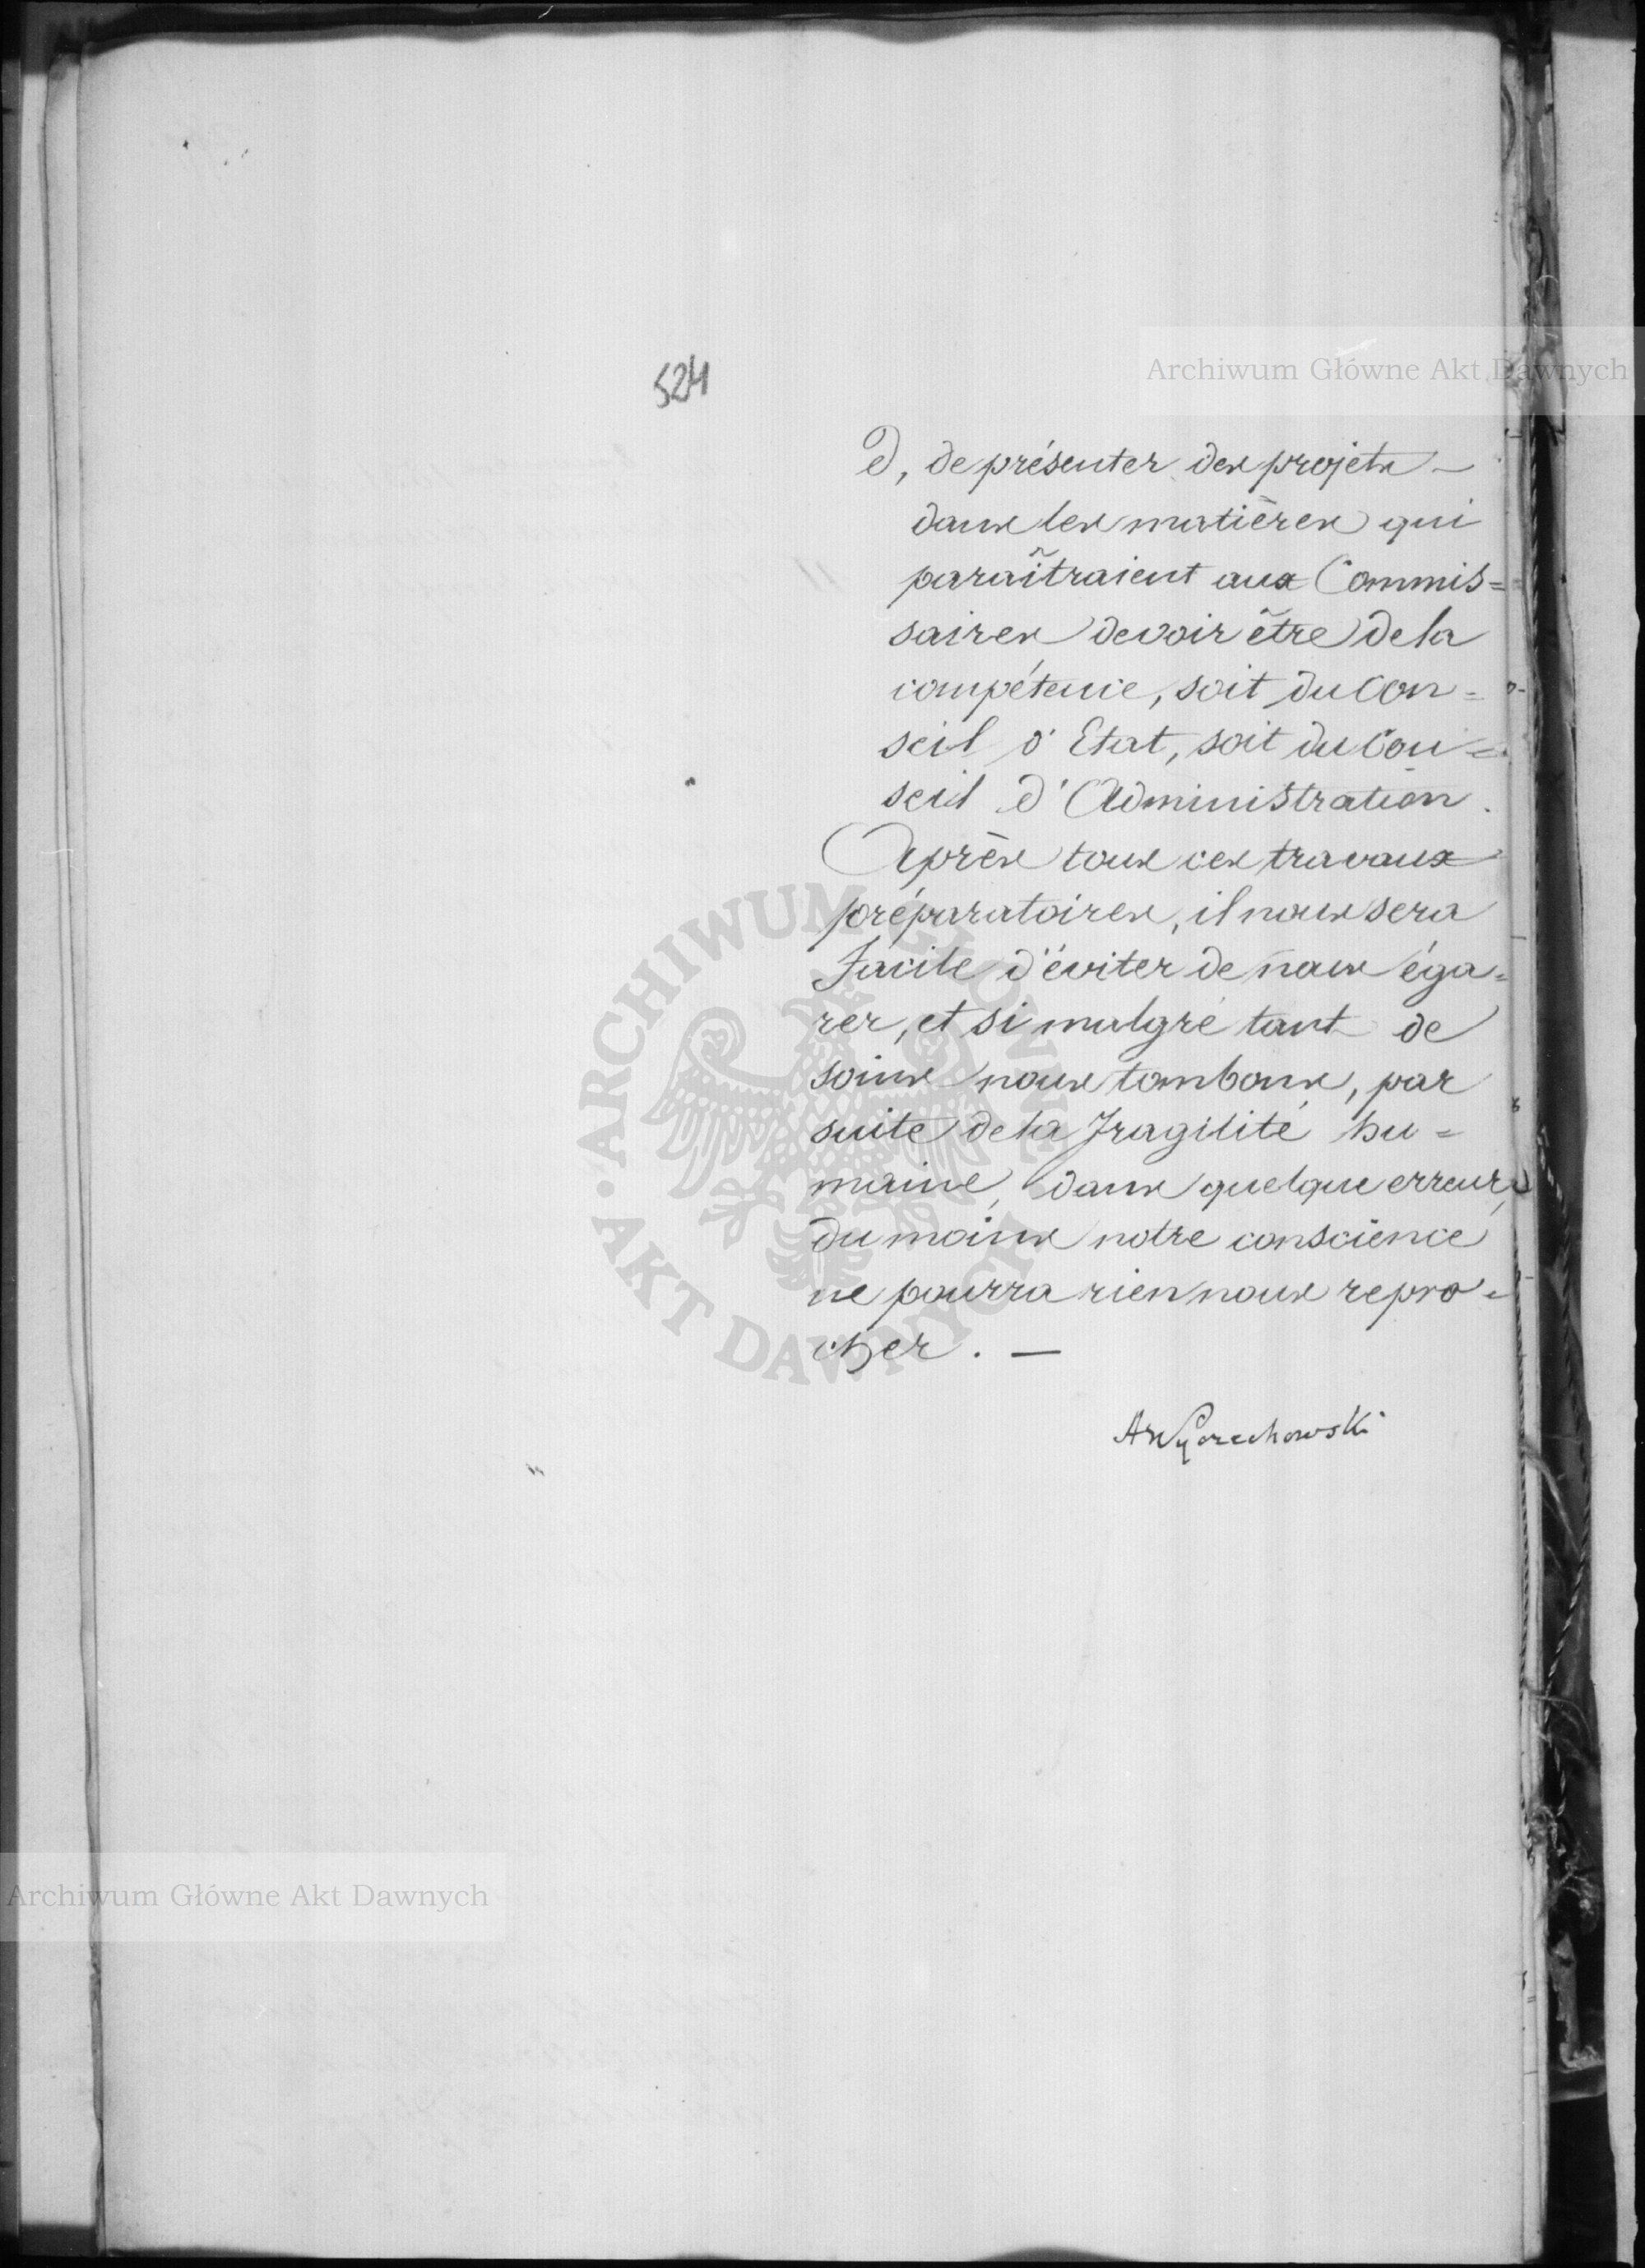 524
Archiwum Główne Akt Dawnych
d, de présenter des projets —
dans les matières qui
paraîtraient aux Commis=
saires devoir être de la
compétence, soit du Con=
seil d'Etat, soit du Con=
seil d'Administration.
Après tous ces travaux
préparatoires, il nous sera
facile d'éviter de nous éga=
rer, et si malgré tant de
soins nous tombons, par
suite de la fragilité hu=
maine, dans quelque erreur,
du moins notre conscience
ne pourra rien nous repro=
cher. —
AWyczechowski
ARCHIWUM GŁÓWNE
AKT DAWNYCH
Archiwum Główne Akt Dawnych